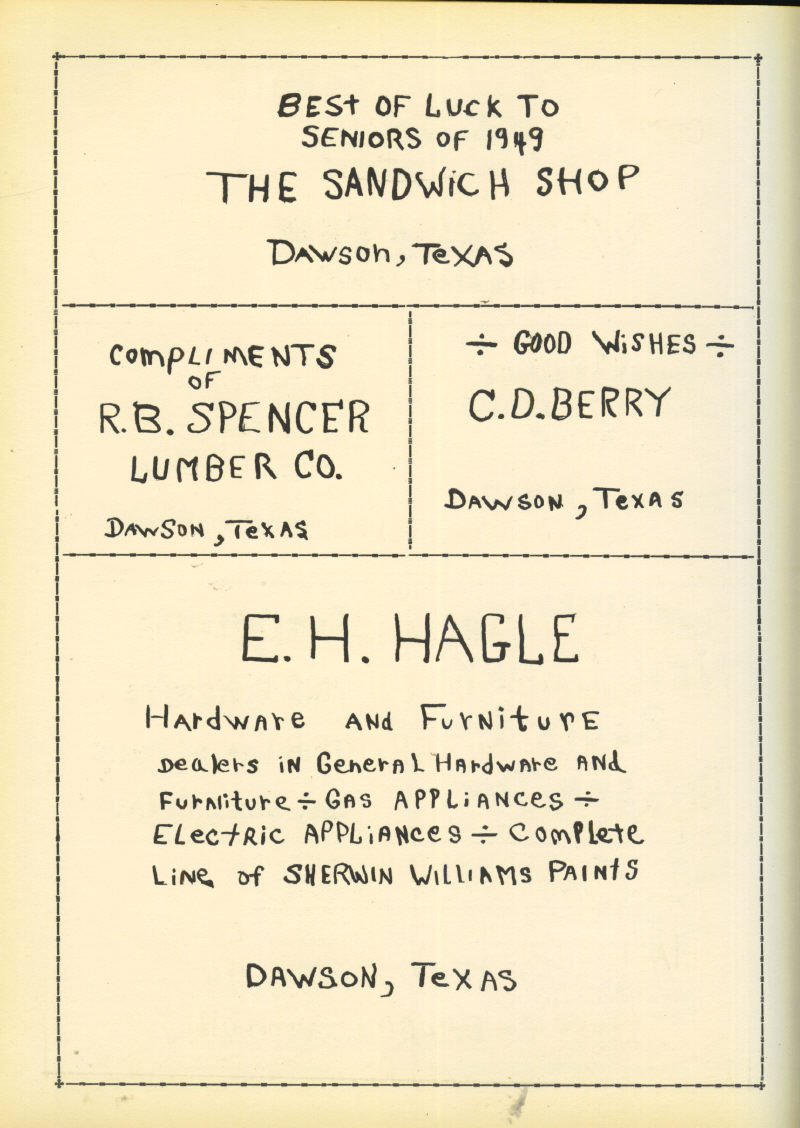 BEST OF LUCK TO
SENIORS OF 1949
THE SANDWICH SHOP
DAWSON, TEXAS
COMPLIMENTS
OF
R.B. SPENCER
LUMBER CO.
DAWSON, TEXAS
÷ GOOD WISHES ÷
C.D. BERRY
DAWSON, TEXAS
E. H. HAGLE
HArdwAre ANd FurNiturE
Dealers iN GenerAl HArdwAre ANd
FurNiture ÷ GAS APPLiANCES ÷
ELectRic APPLiANces ÷ COmPLete
LiNe of SHERWIN WILLIAMS PAINtS
DAWSON, TeXAS